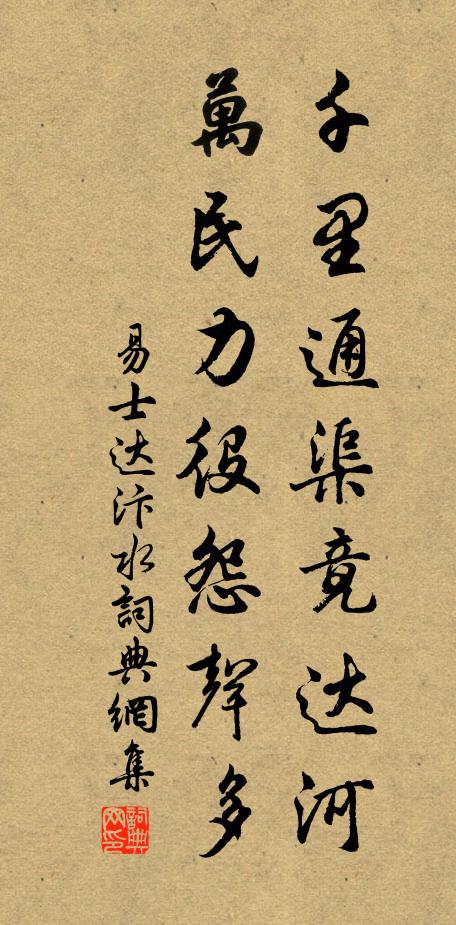 千里通渠竟达河
萬民力役怨聲多
易士达汴水詞典網集
詞典网印